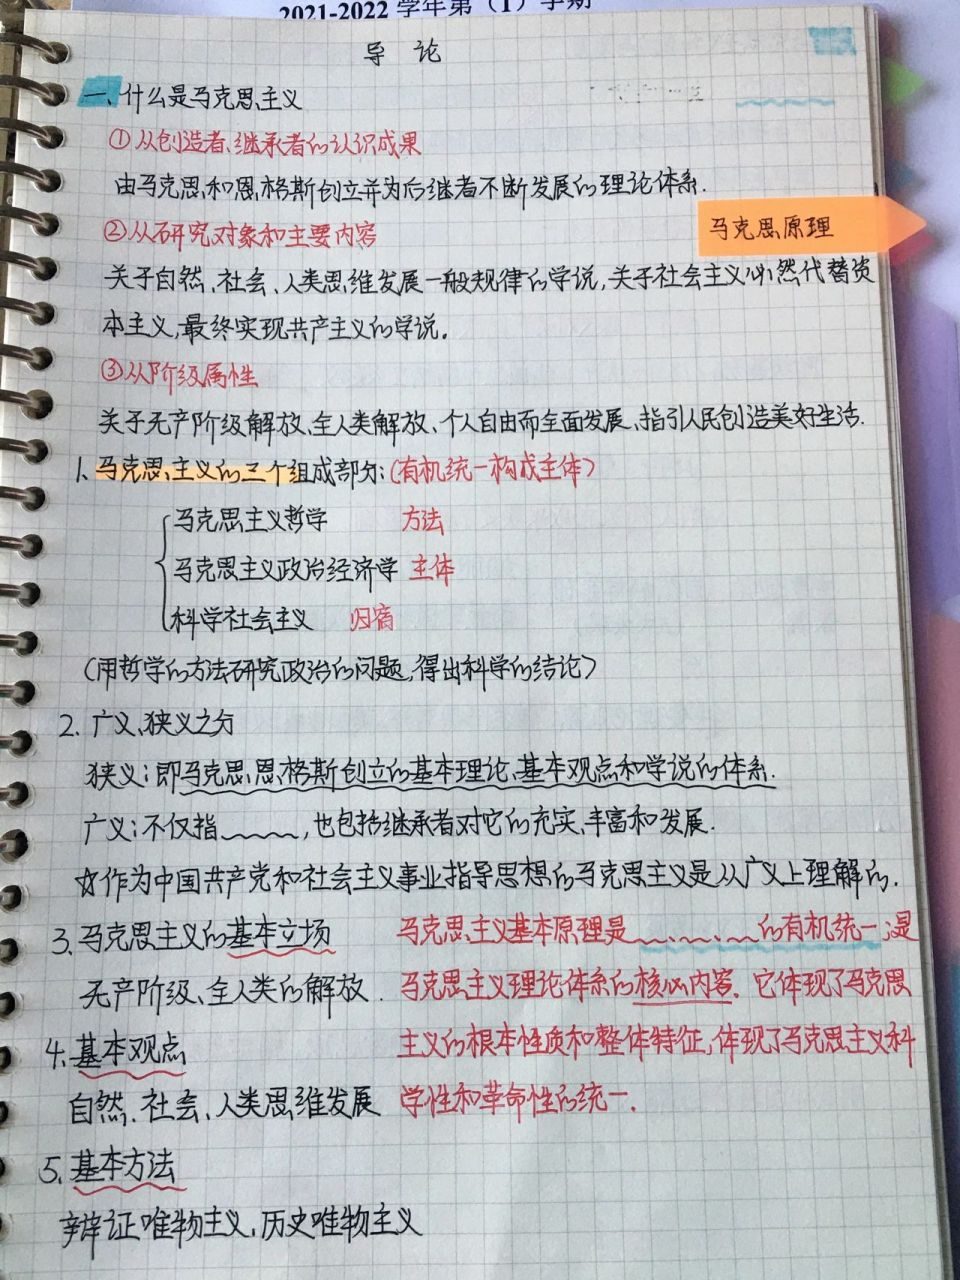 2021-2022 学年第（1）学期
导 论
一、什么是马克思主义
①从创造者、继承者的认识成果
由马克思和恩格斯创立并为后继者不断发展的理论体系.
②从研究对象和主要内容
马克思原理
关于自然、社会、人类思维发展一般规律的学说,关于社会主义必然代替资
本主义,最终实现共产主义的学说。
③从阶级属性
关于无产阶级解放、全人类解放、个人自由而全面发展、指引人民创造美好生活.
1.马克思主义的三个组成部分:(有机统一构成主体)
马克思主义哲学 方法
马克思主义政治经济学 主体
科学社会主义 归宿
(用哲学的方法研究政治的问题,得出科学的结论)
2. 广义、狭义之分
狭义:即马克思、恩格斯创立的基本理论、基本观点和学说的体系.
广义:不仅指﹏﹏﹏,也包括继承者对它的充实、丰富和发展.
☆作为中国共产党和社会主义事业指导思想的马克思主义是从广义上理解的.
3. 马克思主义的基本立场
无产阶级、全人类的解放.
4. 基本观点
自然、社会、人类思维发展
5. 基本方法
辩证唯物主义,历史唯物主义
马克思主义基本原理是﹏、﹏、﹏的有机统一;是
马克思主义理论体系的核心内容. 它体现了马克思
主义的根本性质和整体特征,体现了马克思主义科
学性和革命性的统一.